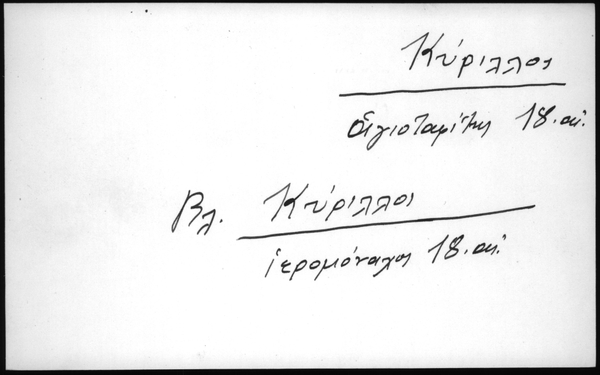 Κύριλλος
ἁγιοταφίτης 18. αἰ.
Βλ. Κύριλλος
ἱερομόναχος 18. αἰ.